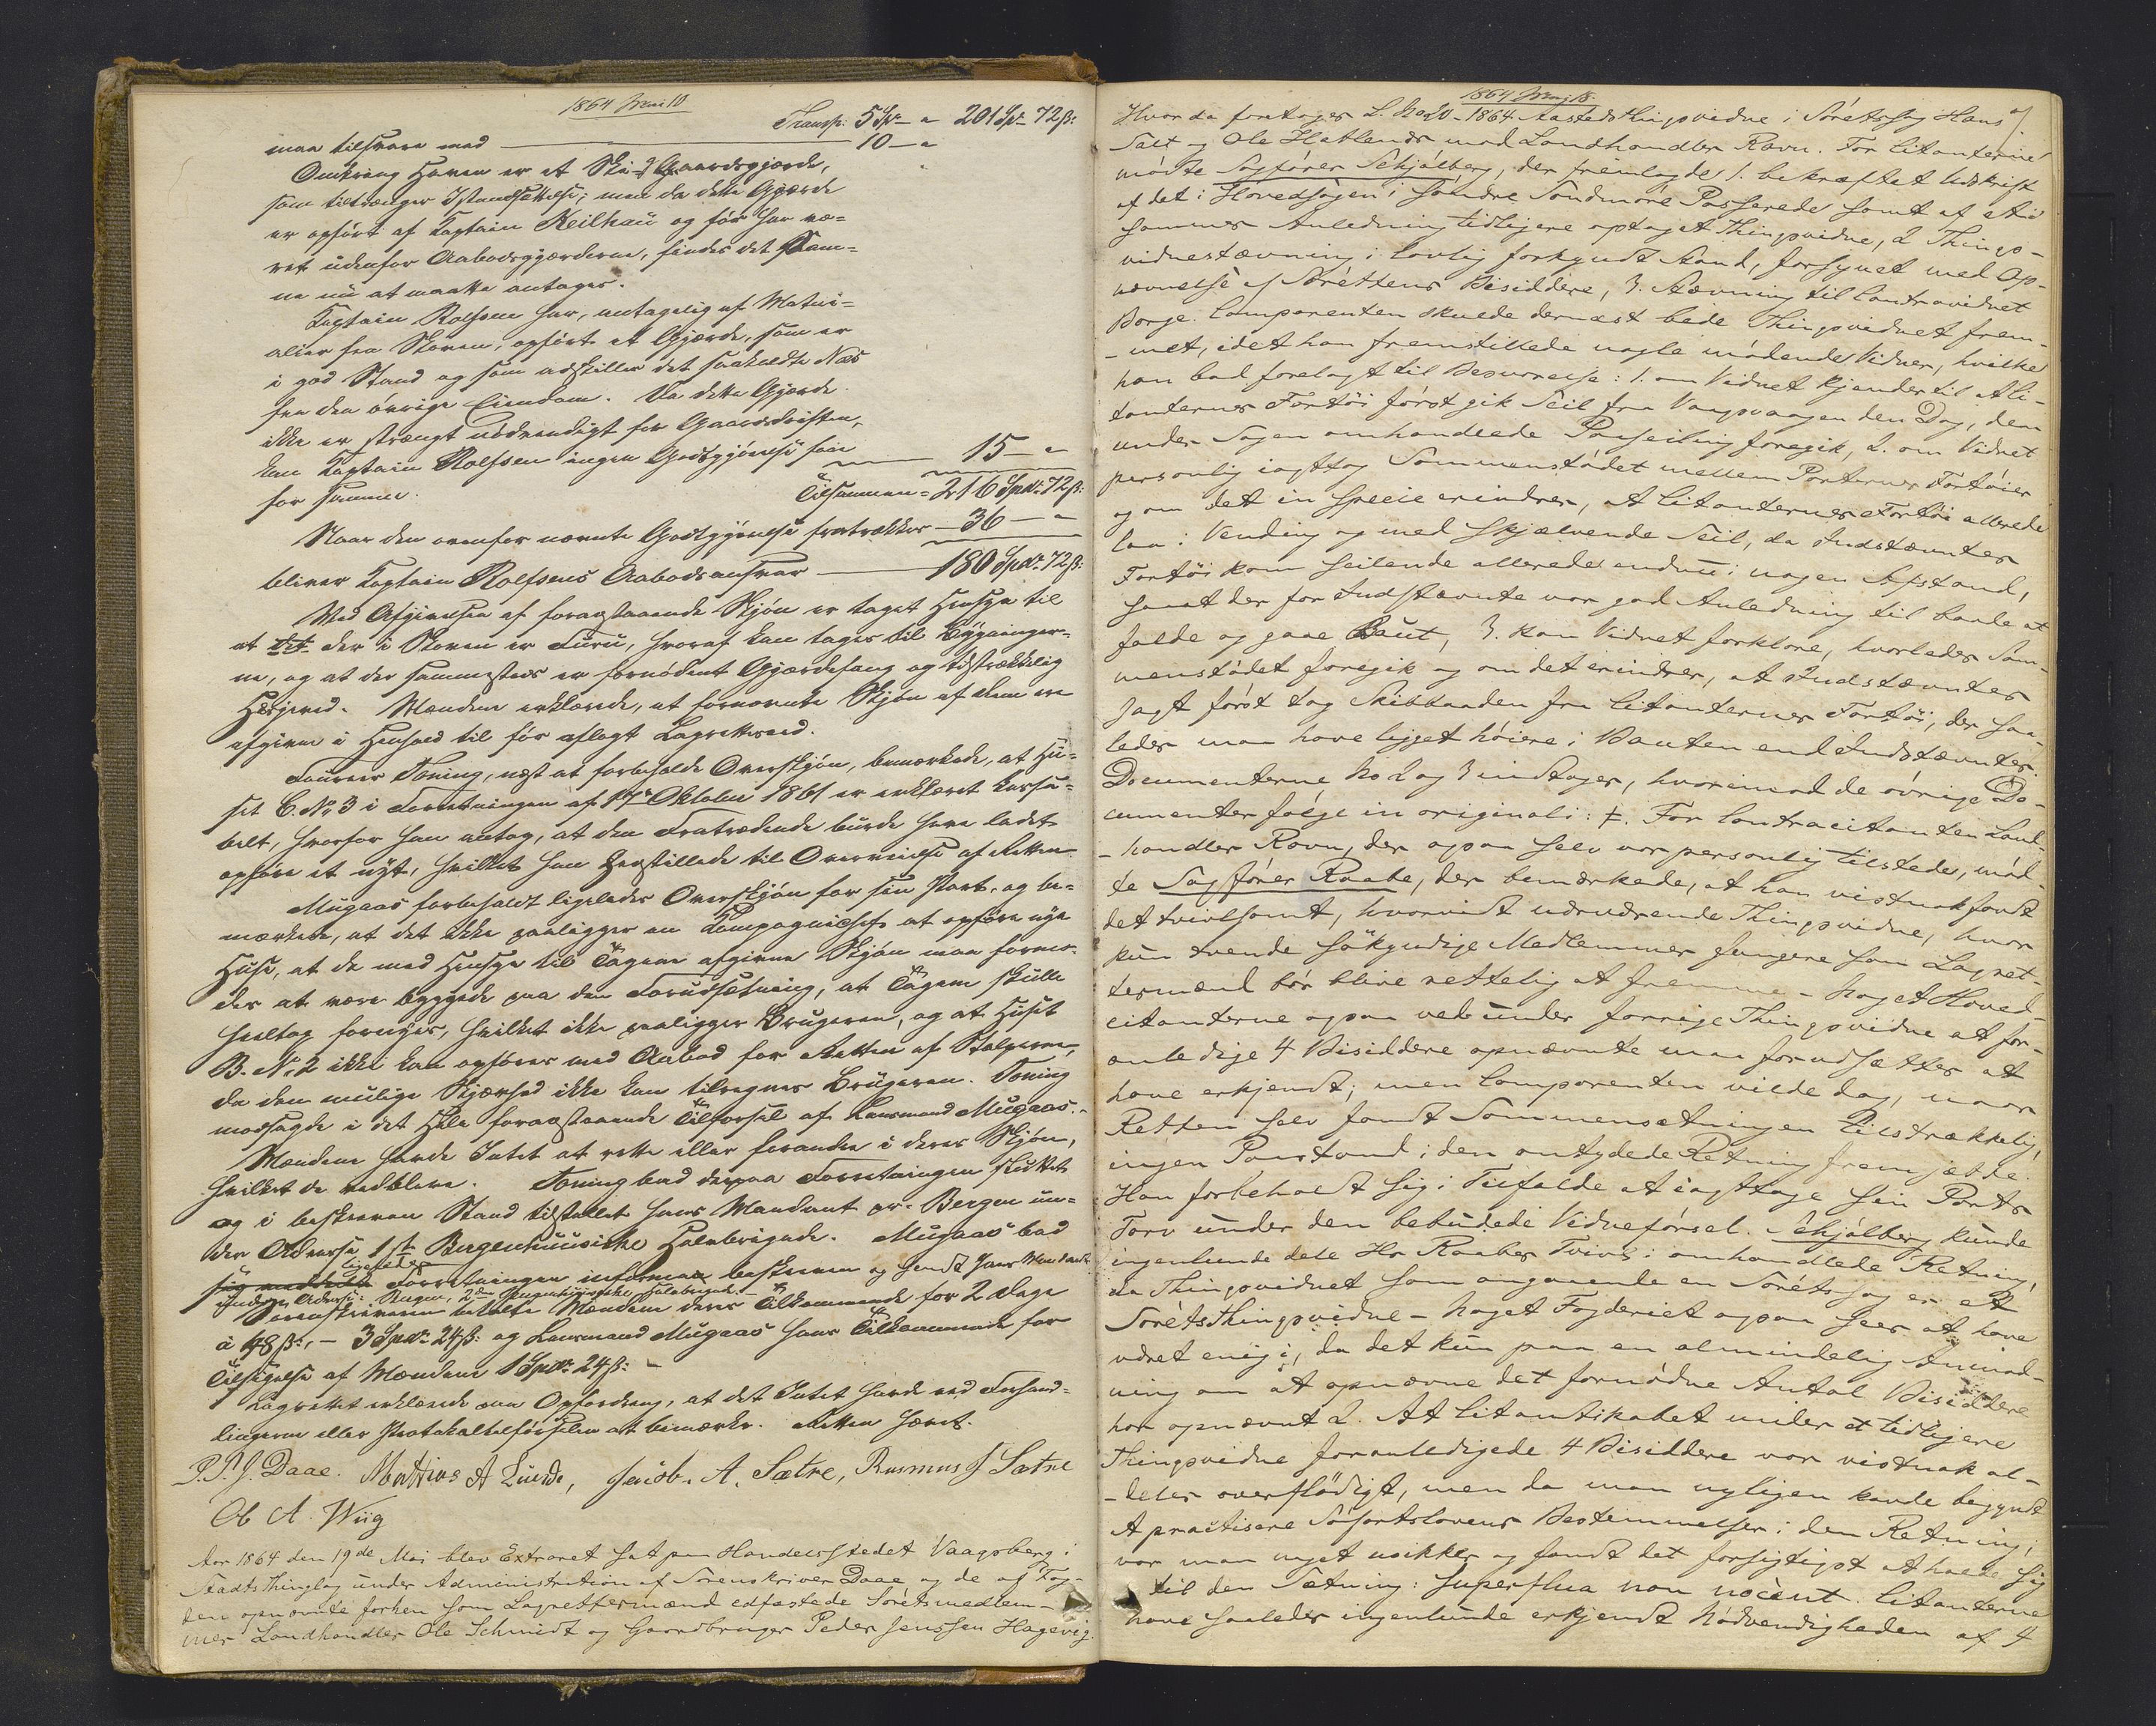 1864 Mai 10
Transp: 5 Spd - " 201 Spd 72 ß:
maa tilsvare med 10 - "
Omkring Haven er et Ski-Gaardsgjærde,
som tiltrænger Istandsættelse; men da dette Gjærde
er opført af Kaptain Keilhau og før har væ-
ret udenfor Aabodsgjærderne, findes det Sam-
me nu at maatte antages.
Kaptain Rolfsen har, antagelig af Materi-
alier fra Skoven, opført et Gjærde, som er
i god Stand og som adskiller det saakaldte Næs
fra den øvrige Eiendom. Da dette Gjærde
ikke er strængt nødvendigt for Gaardsdriften,
kan Kaptain Rolfsen ingen Godtgjørelse faae
for samme. 15 - "
Tilsammen = 216 Spd: 72 ß:
Naar den ovenfor nævnte Godtgjørelse fratrækkes - 36 - "
bliver Kaptain Rolfsens Aabodsansvar 180 Spd: 72 ß:
Med Afgivelsen af foranstaaende Skjøn er taget Hensyn til
at det der i Skoven er Furu, hvoraf kan tages til Bygninger-
ne, og at der sammesteds er fornødent Gjærdefang og tilstrækkelig
Hesjeved. Mændene erklærede, at fornævnte Skjøn af dem er
afgivne i Henhold til før aflagt Lagretteseed.
Fourer Toning, næst at forbeholde Overskjøn, bemærkede, at Hu-
set C. No 3 i Forretningen af 17de Oktober 1861 er erklæret kassa-
belt, hvorfor han antog, at den Fratrædende burde have ladet
opføre et nyt, hvilket han henstillede til Overveielse af Retten.
Mugaas forbeholdt ligeledes Overskjøn for sin Part, og be-
mærkede, at det ikke paaligger en Kompagnichef at opføre nye
Huse, at de med Hensyn til Tagene afgivne Skjøn maa formo-
des at være byggede paa den Forudsætning, at Tagene skulle
heeltag fornyes, hvilket ikke paaligger Brugeren, og at Huset
B. No 2 ikke kan opføres med Aabod for Retten af Stolperne,
da den mulige Skjævhed ikke kan tilregnes Brugeren. Toning
modsagde i det Hele foranstaaende Tilførsel af Lensmand Mugaas.
Mændene havde Intet at rette eller forandre i deres Skjøn,
hvilket de vedbleve. Toning bad derpaa Forretningen sluttet
og i beskreven Stand tilstillet hans Mandant pr. Bergen un-
der Adresse 1ste Bergenhuusiske Halvbrigade. Mugaas bad
ligeledes Forretningen beskreven og sendt hans Mandant
under Adresse: Bergen, 2den Bergenhuusiske Halvbrigade. -
Sorenskriveren betalte Mændene deres Tilkommende for 2 Dage
à 48 ß:, - 3 Spd: 24 ß: og Lensmand Mugaas hans Tilkommende for
Tilsigelse af Mændene 1 Spd: 24 ß: -
Lagrettet erklærede paa Opfordring, at det Intet havde ved Forhand-
lingerne eller Protokoltilførselen at bemærke. Retten hævet.
P. P. J. Daae. Matthias A Lunde, Jacob. A. Sætre, Rasmus J Sætre
Ob A. Wiig
Aar 1864 den 19de Mai blev Extraret sat paa Handelsstedet Vaagsberg i
Stadts Thinglag under Administration af Sorenskriver Daae og de af Fog-
den opnævnte forhen som Lagrettesmænd edfæstede Søretsmedlem-
mer Landhandler Ole Schmidt og Gaardbruger Peder Jenssen Hagevig.
1864 Mai 18.
Hvor da foretoges L. No 20 - 1864. Aastedsthingsvidne i Søretssag Hans
Salt og Ole Hatlends mod Landhandler Ravn. For Citanterne
mødte Sagfører Schjølberg, der fremlagde 1. bekræftet Udskrift
af det i Hovedsagen i Søndre Søndmøre Passerede samt af et i
sammes Anledning tidligere optaget Thingsvidne, 2 Things-
vidnestævning i lovlig forkyndt Stand, forsynet med Op-
nævnelse af Sørettens Bisiddere, 3. Stævning til Contravidnet
Borge. Comparenten skulde dernæst bede Thingsvidnet frem-
met, idet han fremstillede nogle mødende Vidner, hvilke
han bad forelagt til Besvarelse: 1. om Vidnet kjender til at Ci-
tanternes Fartøi først gik Seil fra Vaagsvaagen den Dag, den
under Sagen omhandlede Paaseiling foregik, 2. om Vidnet
personlig iagttog Sammenstødet mellem Parternes Fartøier
og om det in specie erindrer, at Citanternes Fartøi allerede
laa i Vending og med skjælvende Seil, da Indstævntes
Fartøi kom seilende allerede endnu i nogen Afstand,
saaat der for Indstævnte var god Anledning til baade at
falde og gaae Baut, 3. kan Vidnet forklare, hvorledes Sam-
menstødet foregik og om det erindrer, at Indstævntes
Jagt først tog Skibbaaden fra Citanternes Fartøi, der saa-
ledes maa have ligget høiere i Bauten end Indstævntes.
Documenterne No 2 og 3 indtages, hvorimod de øvrige Do-
cumenter følge in originali: ‡. For Contracitanten Land-
handler Ravn, der ogsaa selv var personlig tilstede, mød-
te Sagfører Raabe, der bemærkede, at han vistnok fandt
det tvivlsomt, hvorvidt nærværende Thingsvidne, hvor
kun tvende søkyndige Medlemmer fungere som Lagret-
tesmænd bør blive rettelig at fremme - noget Hoved-
citanterne ogsaa ved under forrige Thingsvidne at for-
anledige 4 Bisiddere opnævnte maa forudsættes at
have erkjendt; men Comparenten vilde dog, naar
Retten selv fandt Sammensætningen tilstrækkelig,
ingen Paastand i den antydede Retning fremsætte.
Han forbeholdt sig i Tilfælde at iagttage sin Parts
Tarv under den bebudede Vidneførsel. Schjølberg kunde
ingenlunde dele Hr Raabes Tvivl i omhandlede Retning,
da Thingsvidnet som angaaende en Søretssag er et
Søretsthingsvidne - noget Fogderiet ogsaa sees at have
været enig i, da det kun paa en almindelig Anmod-
ning om at opnævne det fornødne Antal Bisiddere
har opnævnt 2. At Citantskabet under et tidligere
Thingsvidne foranledigede 4 Bisiddere var vistnok al-
deles overflødigt, men da man nyligen havde begyndt
at practisere Søfartslovens Bestemmelser i den Retning,
var man noget usikker og fandt det forsigtigst at holde sig
til den Sætning: superflua non nocent. Citanterne
have saaledes ingenlunde erkjendt Nødvendigheden af 4